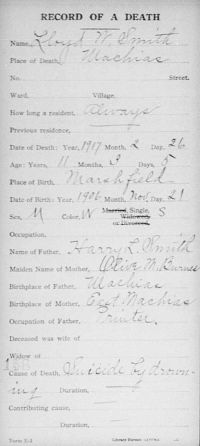 RECORD OF A DEATH
Name, Lloyd W. Smith
Place of Death, Machias
No. Street.
Ward, Village.
How long a resident, Always
Previous residence,
Date of Death: Year, 1917 Month, 2 Day, 26
Age: Years, 11 Months, 3 Days, 5
Place of Birth, Marshfield
Date of Birth: Year, 1905 Month, Nov. Day, 21
Sex, M Color, W Married, Single, Widowed, or Divorced, S
Occupation,
Name of Father, Harry L. Smith
Maiden Name of Mother, Olive M. Burnes
Birthplace of Father, Machias
Birthplace of Mother, East Machias
Occupation of Father, Printer.
Deceased was wife of
Widow of
Cause of Death, Suicide by drown-
ing Duration,
Contributing cause,
Duration,
Library Bureau